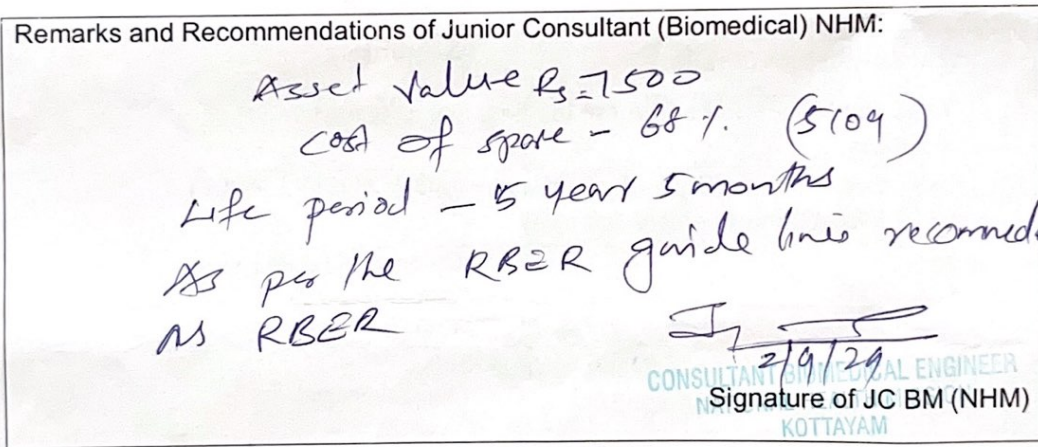 Remarks and Recommendations of Junior Consultant (Biomedical) NHM:
Asset Value Rs = 7500
Cost of spare - 68 %. (5109)
Life period - 5 year 5 months
As per the RBER guide lines recommed
as RBER
2/9/24
CONSULTANT BIOMEDICAL ENGINEER
Signature of JC BM (NHM)
KOTTAYAM